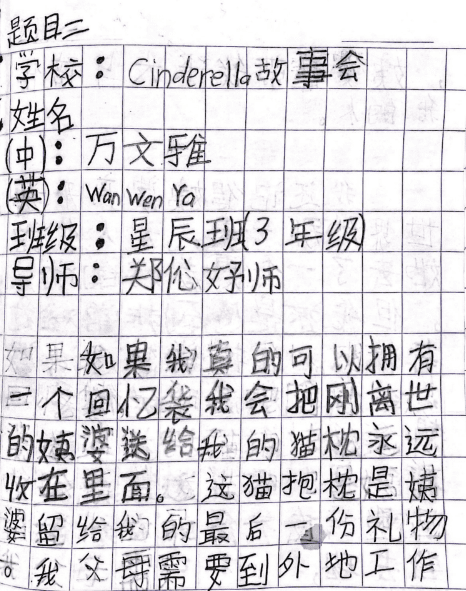 题目二
学校：Cinderella故事会
姓名
(中)：万文雅
(英)：Wan Wen Ya
班级：星辰班(3年级)
导师：郑伀好师
如果如果我真的可以拥有
一个回忆袋我会把刚离世
的姨婆送给我的猫枕永远
收在里面。这猫抱枕是姨
婆留给我的最后一份礼物
。我父母需要到外地工作